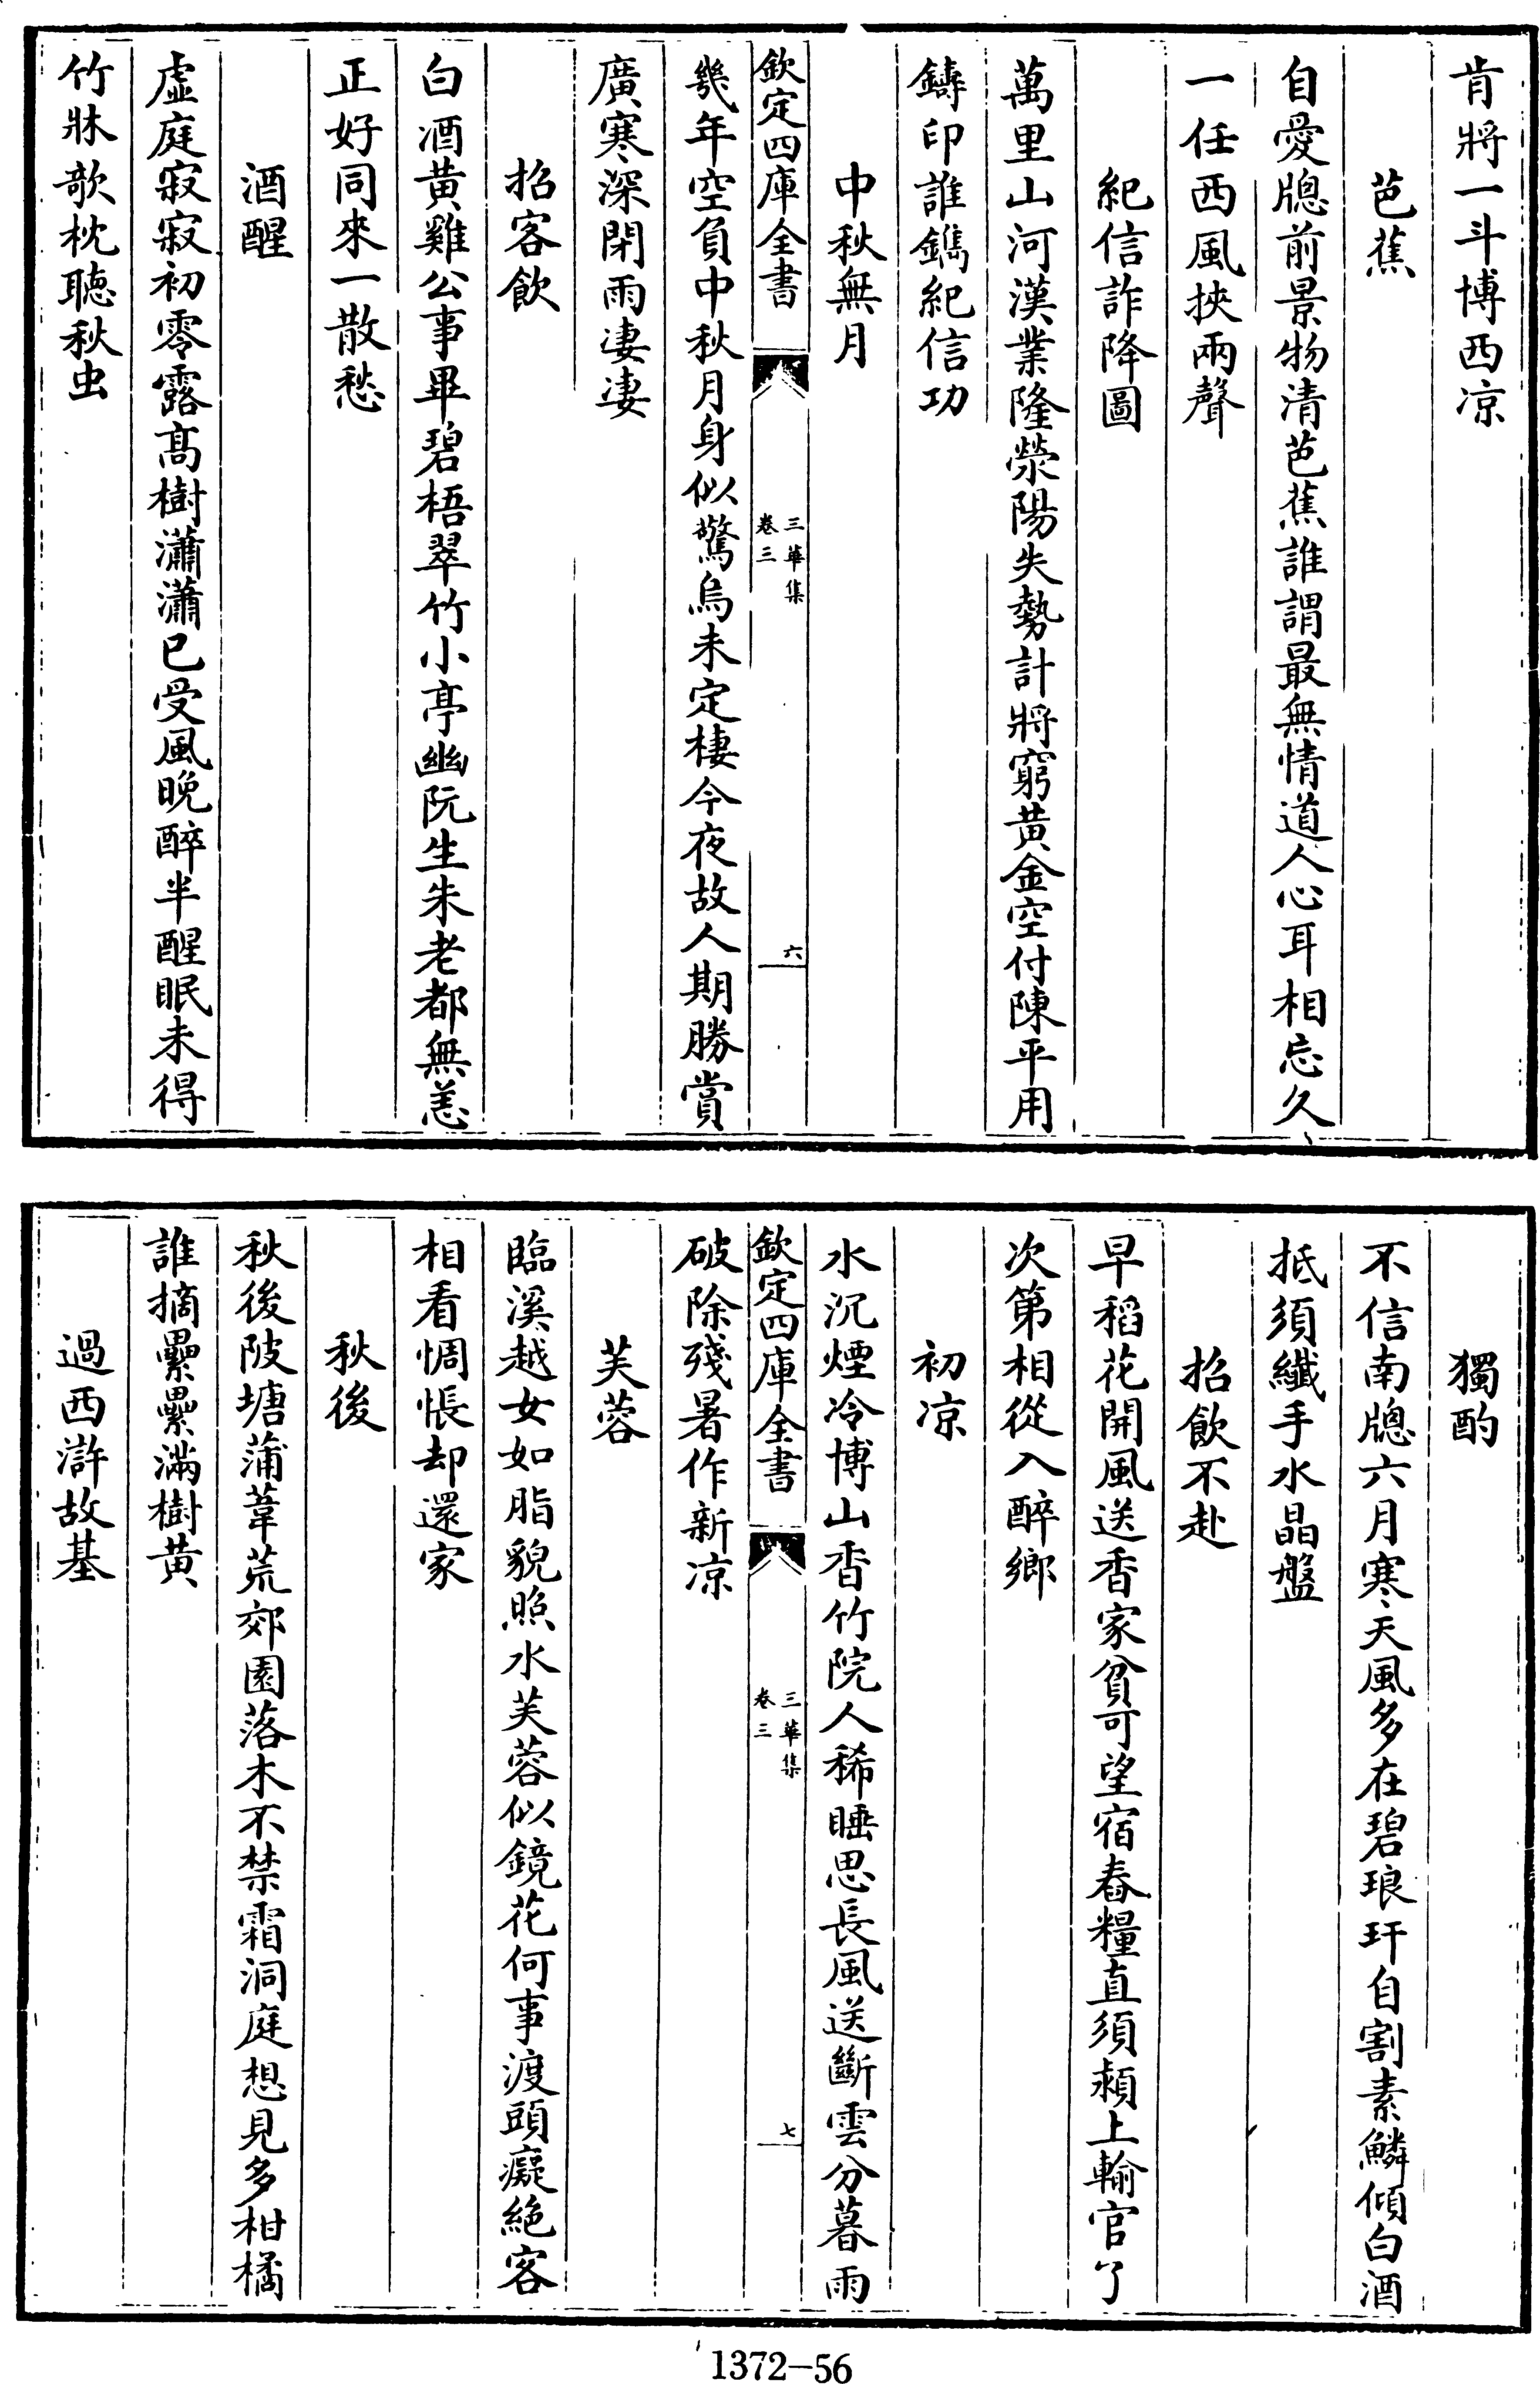 肯將一斗博西凉
芭蕉
自愛牕前景物清芭蕉誰謂最無情道人心耳相忘久
一任西風挾兩聲
紀信詐降圖
萬里山河漢業隆滎陽失勢計將窮黄金空付陳平用
鑄印誰鐫紀信功
中秋無月
欽定四庫全書
三華集
卷三
六
幾年空負中秋月身似驚烏未定棲今夜故人期勝賞
廣寒深閉雨凄凄
招客飲
白酒黄雞公事畢碧梧翠竹小亭幽阮生朱老都無恙
正好同來一散愁
酒醒
虚庭寂寂初零露髙樹瀟瀟已受風晚醉半醒眠未得
竹牀欹枕聽秋虫
獨酌
不信南牕六月寒天風多在碧琅玕自割素鱗傾白酒
抵須纎手水晶盤
招飲不赴
早稻花開風送香家貧可望宿舂糧直須頳上輸官了
次第相從入醉鄉
初凉
水沉煙冷博山香竹院人稀睡思長風送斷雲分暮雨
欽定四庫全書
三華集
卷三
七
破除殘暑作新凉
芙蓉
臨溪越女如脂貌照水芙蓉似鏡花何事渡頭癡絶客
相看惆悵却還家
秋後
秋後陂塘蒲葦荒郊園落木不禁霜洞庭想見多柑橘
誰摘纍纍滿樹黄
過西滸故基
1372-56